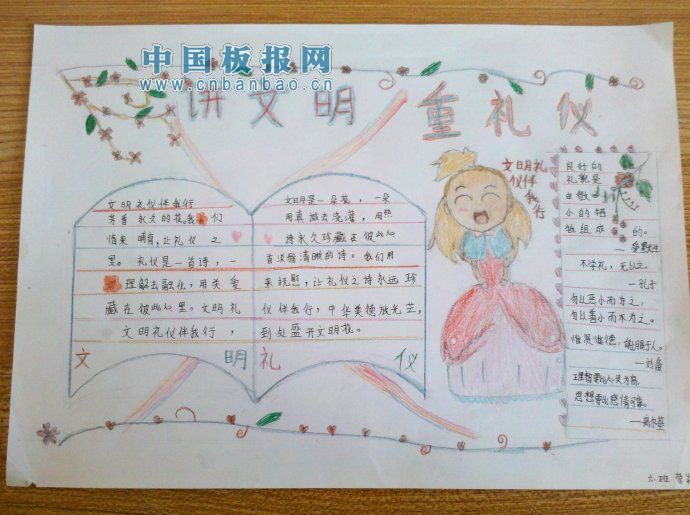 中国板报网
www.cnbanbao.cn
讲文明 重礼仪
文明礼仪伴我行
芳香永久的花。我们
情来哺育，让礼仪之
里。礼仪是一首诗，一
理解去融化，用关爱
藏在彼此心里。文明礼
文明礼仪伴我行，
文明是一朵花，一朵
用真诚去浇灌，用热
诗永久珍藏在彼此心
首淡雅清晰的诗。我们用
来抚慰，让礼仪之诗永远珍
仪伴我行，中华美德放光芒，
到处盛开文明花。
文明礼仪
文明礼
仪伴
我
行
良好的
礼貌是
由微
小的牺
牲组成的。
—爱默生
不学礼，无以立。
—孔子
勿以恶小而为之，
勿以善小而不为之。
惟贤惟德，能服于人。
—刘备
理智要比心灵为高，
思想要比感情可靠。
—高尔基
六班